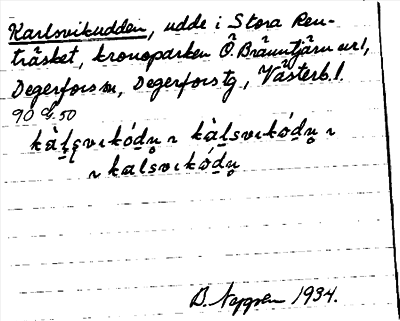 Karlsvikudden, udde i Stora Ren-
träsket, kronoparken Ö. Brännträsm nr 1,
Degerfors sn, Degerfors tg, Västerb. l.
90 G 50
kàḷṣvikódṇ ~ kàḷsvikódṇ ~
~ kalsvikódṇ
B. Nygren 1934.